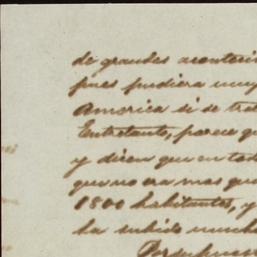 de grandes acontecim
pues pudiera muy
America si se tra
Entretanto, parece qu
y dicen que en tod
que no era mas que
1800 habitantes, y
ha subido mucho